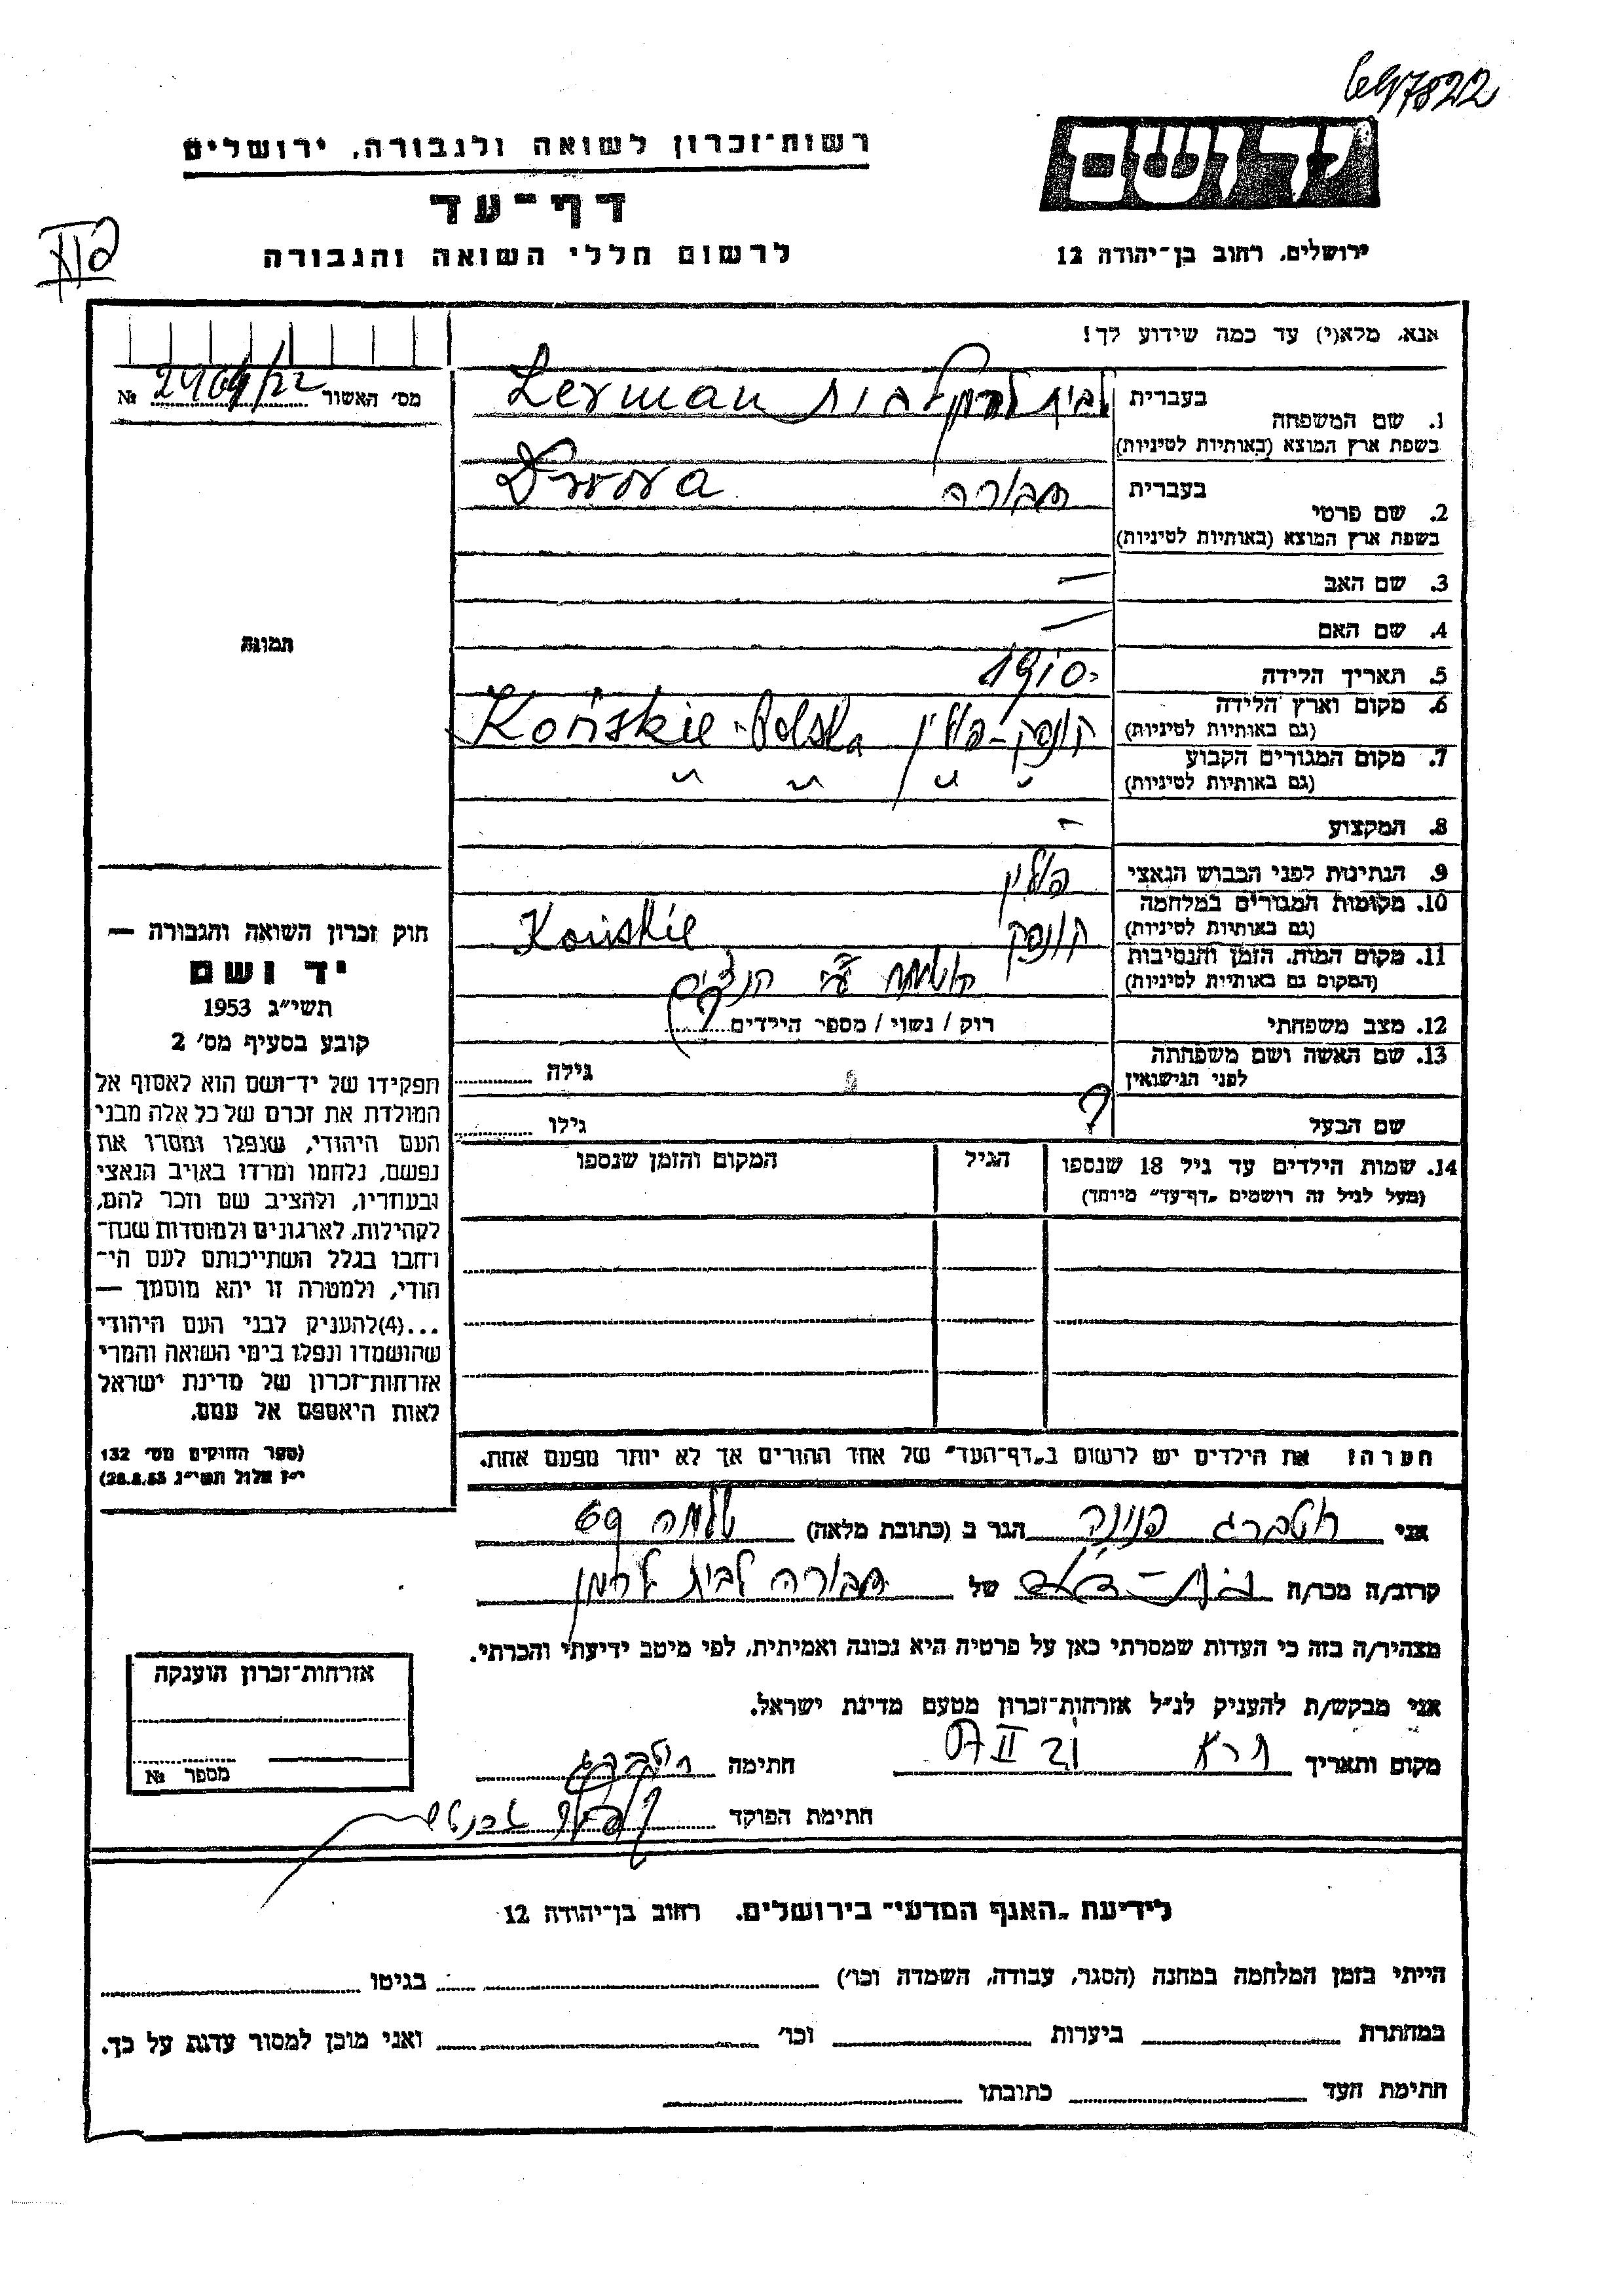 697822
יד ושם
רשות־זכרון לשואה ולגבורה, ירושלים
דף־עד
לרשום חללי השואה והגבורה
ירושלים, רחוב בן־יהודה 12
אנא, מלא(י) עד כמה שידוע לך!
מס׳ האשור № 2469/22
1. שם המשפחה בעברית
בשפת ארץ המוצא (באותיות לטיניות)
לבית לרמן Lerman
2. שם פרטי בעברית דבורה
בשפת ארץ המוצא (באותיות לטיניות)
Dwora
3. שם האב —
4. שם האם —
תמונה
5. תאריך הלידה 1910
6. מקום וארץ הלידה
(גם באותיות לטיניות)
קונסק - פולין Końskie - Polska
7. מקום המגורים הקבוע
(גם באותיות לטיניות)
" " " "
8. המקצוע —
9. הנתינות לפני הכבוש הנאצי פולין
10. מקומות המגורים במלחמה
(גם באותיות לטיניות)
קונסק Końskie
11. מקום המות, הזמן והנסיבות
(המקום גם באותיות לטיניות)
ע"י הנצים
12. מצב משפחתי רוק / נשוי / מספר הילדים ?
13. שם האשה ושם משפחתה
לפני הנישואין
גילה
שם הבעל ? גילו
14. שמות הילדים עד גיל 18 שנספו הגיל המקום והזמן שנספו
(מעל לגיל זה רושמים „דף־עד״ מיוחד)
חוק זכרון השואה והגבורה —
יד ושם
תשי״ג 1953
קובע בסעיף מס׳ 2
תפקידו של יד־ושם הוא לאסוף אל
המולדת את זכרם של כל אלה מבני
העם היהודי, שנפלו ומסרו את
נפשם, נלחמו ומרדו באויב הנאצי
ובעוזריו, ולהציב שם וזכר להם,
לקהילות, לארגונים ולמוסדות שנח־
רבו בגלל השתייכותם לעם הי־
הודי, ולמטרה זו יהא מוסמך —
...(4)להעניק לבני העם היהודי
שהושמדו ונפלו בימי השואה והמרי
אזרחות־זכרון של מדינת ישראל
לאות היאספם אל עמם.
(ספר החוקים מס׳ 132
י״ז אלול תשי״ג 28.8.53)
הערה! את הילדים יש לרשום ב„דף־העד״ של אחד ההורים אך לא יותר מפעם אחת.
אני פנינה הגר ב (כתובת מלאה) שלמה 69
קרוב/ה מכר/ה של דבורה לבית לרמן
מצהיר/ה בזה כי העדות שמסרתי כאן על פרטיה היא נכונה ואמיתית, לפי מיטב ידיעתי והכרתי.
אני מבקש/ת להעניק לנ״ל אזרחות־זכרון מטעם מדינת ישראל.
מקום ותאריך חתימה
חתימת הפוקד
אזרחות־זכרון הוענקה
מספר №
לידיעת „האגף המדעי״ בירושלים, רחוב בן־יהודה 12
הייתי בזמן המלחמה במחנה (הסגר, עבודה, השמדה וכו׳) בגיטו
במחתרת ביערות וכו׳ ואני מוכן למסור עדות על כך.
חתימת העד כתובתו